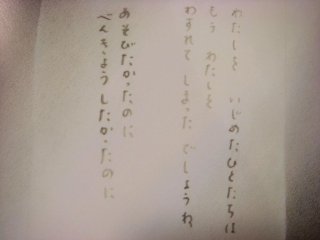 わたしを　いじめたひとたちは
もう　わたしを
わすれて　しまった　でしょうね
あそびたかったのに
べんきょうしたかったのに